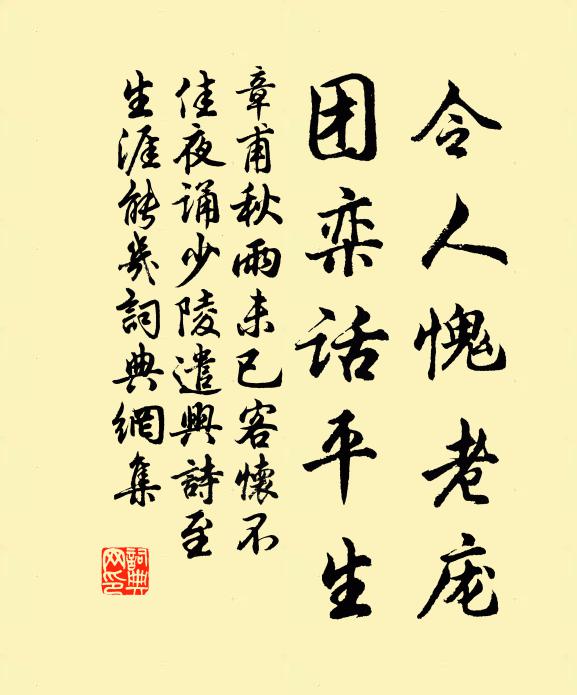 令人愧老庞
团栾话平生
章甫秋雨未已客懷不
佳夜诵少陵遣興詩至
生涯能幾詞典網集
詞典网印